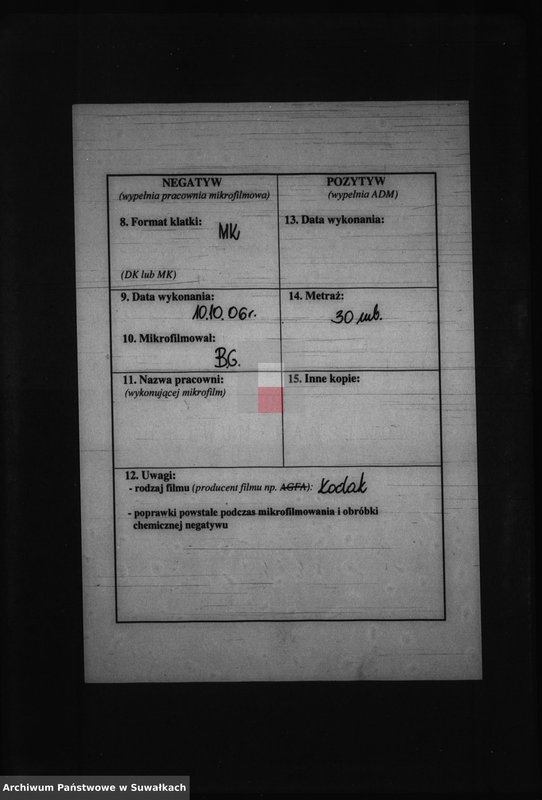 NEGATYW
(wypełnia pracownia mikrofilmowa)
8. Format klatki:
MK
(DK lub MK)
POZYTYW
(wypełnia ADM)
13. Data wykonania:
9. Data wykonania:
10.10.06r.
10. Mikrofilmował:
B.G.
14. Metraż:
30 mb.
11. Nazwa pracowni:
(wykonującej mikrofilm)
15. Inne kopie:
12. Uwagi:
- rodzaj filmu (producent filmu np. AGFA): Kodak
- poprawki powstałe podczas mikrofilmowania i obróbki
chemicznej negatywu
Archiwum Państwowe w Suwałkach